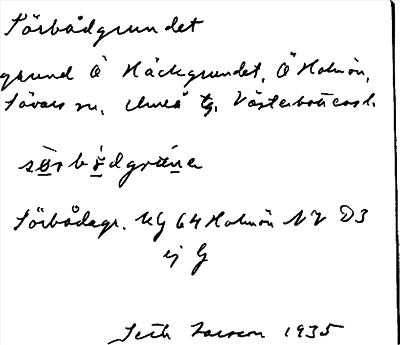 Sörbådgrundet
grund Ö Häckgrundet, Ö Holmön,
Sävars sn, Umeå tg, Västerbottens l.
Sörbådagr. KG 64 Holmön NV D3
ej G
Seth Larsson 1935